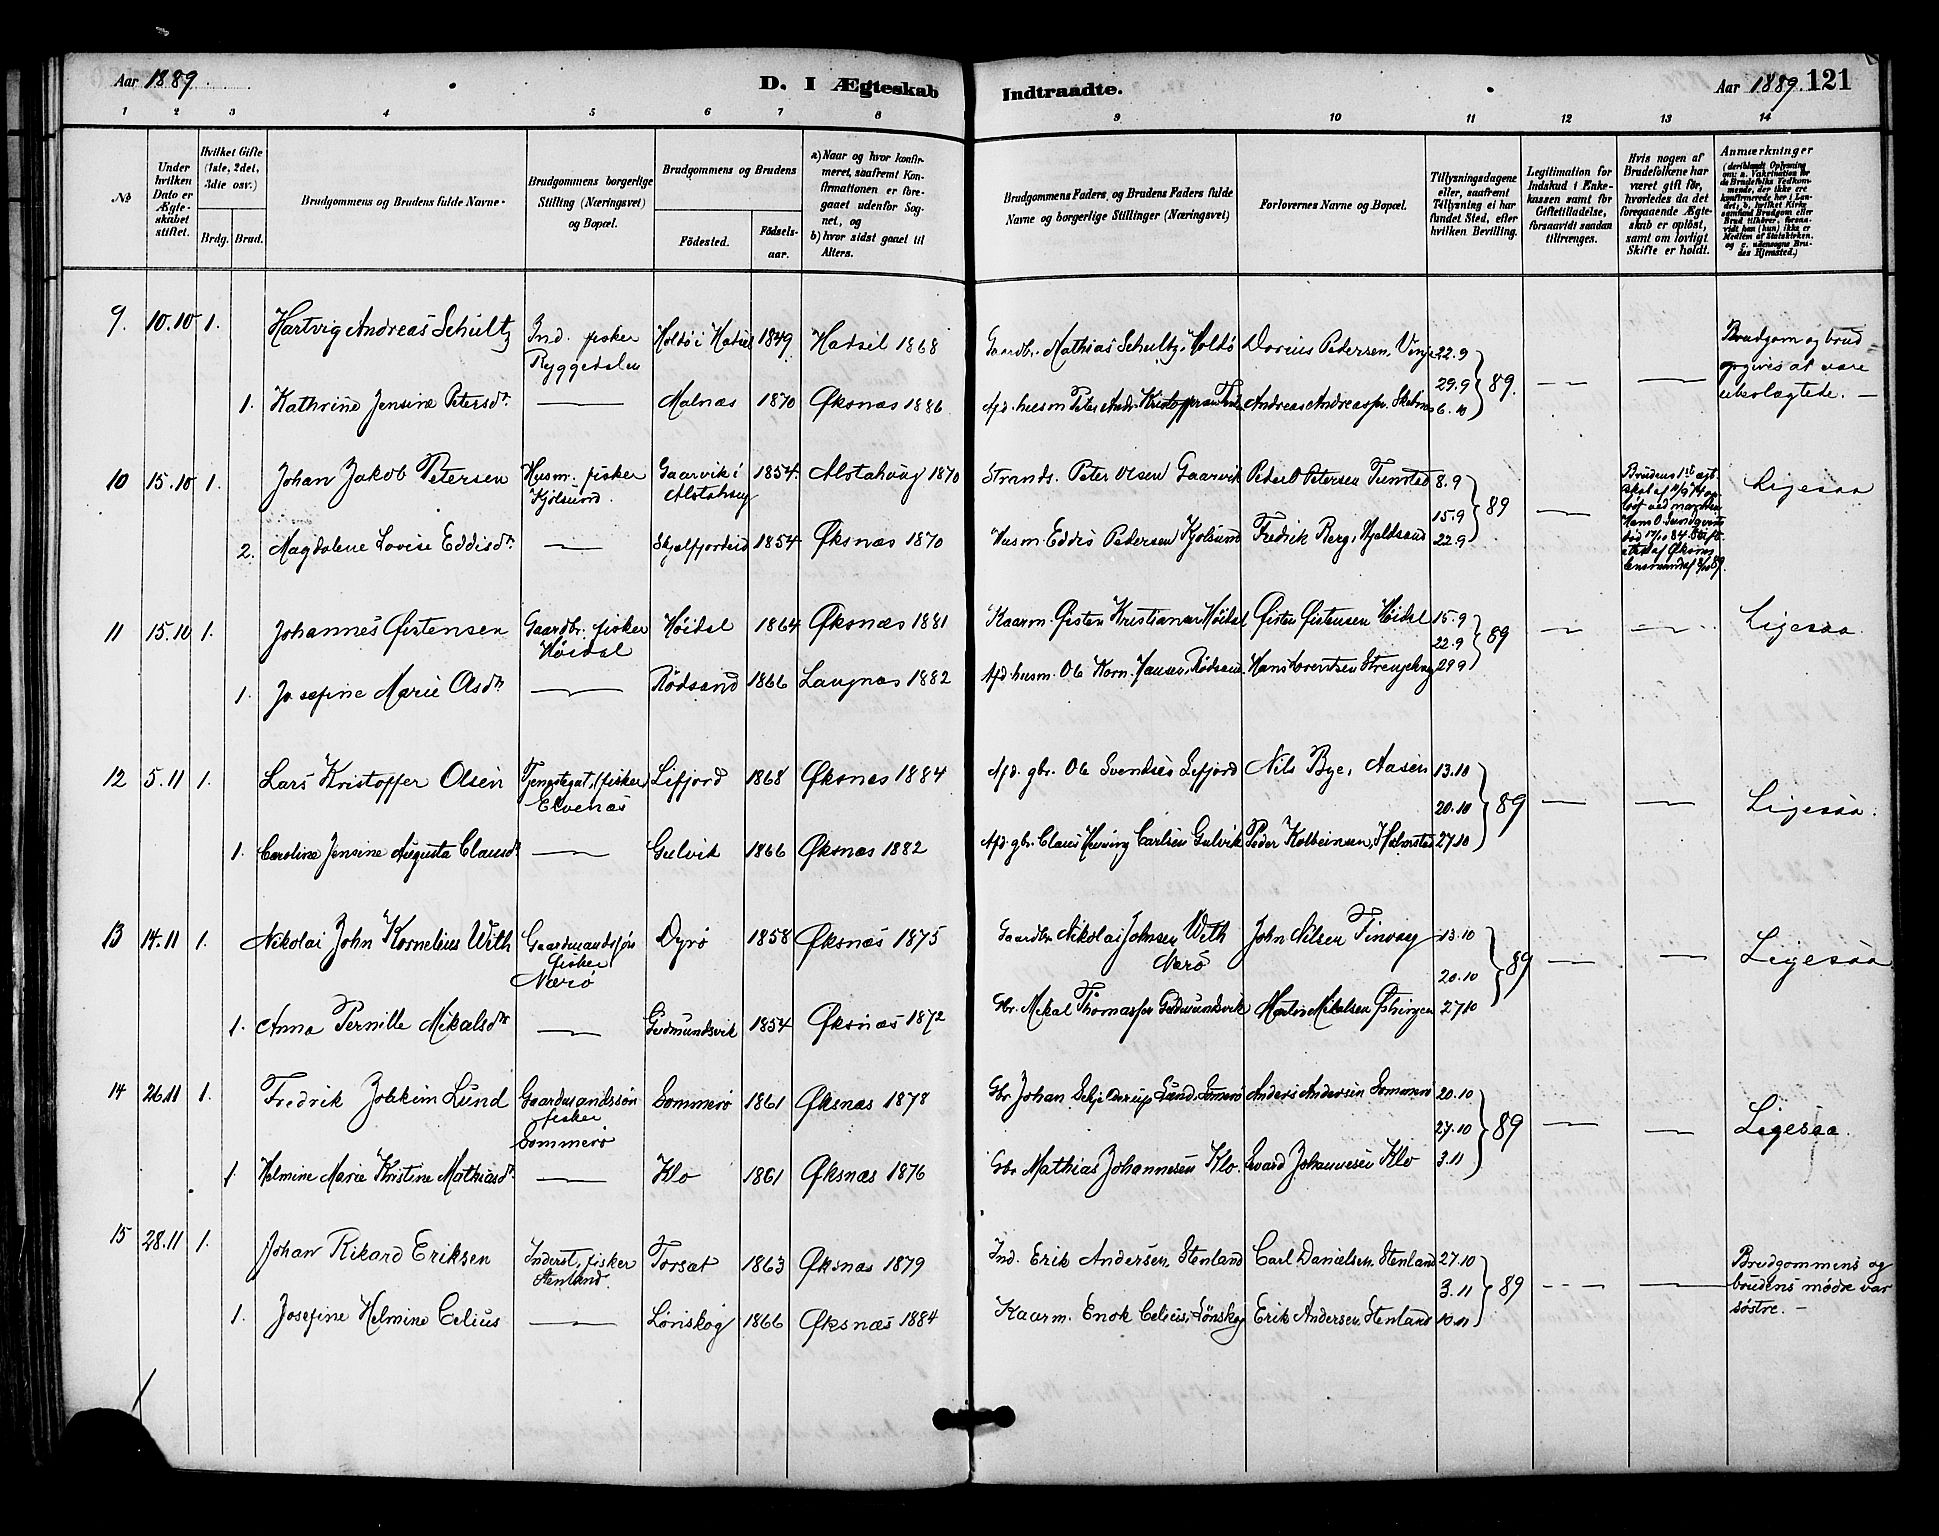 Aar 1889.
D. I Ægteskab
Indtraadte.
Aar 1889. 121
1 2 3 4 5 6 7 8 9 10 11 12 13 14
No
Under hvilken Dato er Ægteskabet stiftet.
Hvilket Gifte (1ste, 2det, 3die osv.)
Brdg. Brud.
Brudgommens og Brudens fulde Navne.
Brudgommens borgerlige Stilling (Næringsvei) og Bopæl.
Brudgommens og Brudens
Födested.
Födselsaar.
a) Naar og hvor konfirmeret, saafremt Konfirmationen er foregaaet udenfor Sognet, og
b) hvor sidst gaaet til Alters.
Brudgommens Faders, og Brudens Faders fulde Navne og borgerlige Stillinger (Næringsvei)
Forlovernes Navne og Bopæl.
Tillysningsdagene eller, saafremt Tillysning ei har fundet Sted, efter hvilken Bevilling.
Legitimation for Indskud i Enkekassen samt for Giftetilladelse, forsaavidt saadan tiltrænges.
Hvis nogen af Brudefolkene har været gift før, hvorledes da det foregaaende Ægteskab er opløst, samt om lovligt Skifte er holdt.
Anmærkninger
(deriblandt Oplysning om: a. Vakcination for de Brudefolks Vedkommende, der ikke ere konfirmerede her i Landet, b. hvilket Kirkesamfund Brudgom eller Brud tilhører, forsaavidt han (hun) ikke er Medlem af Statskirken, og c. udensogns Brudes Hjemsted.)
9. 10.10 1. Hartvig Andreas Schultz Ind. fisker Ryggedalen Holdö i Hadsel 1849 Hadsel 1868 Gaardbr. Mathias Schultz, Holdö Dorius Pedersen, Vinje 22.9
29.9 } 89. — — Brudgom og brud opgives at være ubeslægtede. —
1. Kathrine Jensine Petersdr. — Malnæs 1870 Øksnæs 1886 Afd. husm Peter Andr. Kristoffersen Andreas Andreassen, 6.10
10 15.10 1. Johan Jakob Petersen Husm. fisker Kjölsund. Gaarvik i Alstahaug 1854. Alstahaug 1870 Strands. Peter Olsen Gaarvik Peder O Petersen Tunstad 8.9
15.9 } 89 — Brudens 1ste Ligesaa
2. Magdalene Lovise Eddisdr. — Skjelfjordeid 1854 Øksnæs 1870 Husm Eddis Pedersen Kjölsund Fredrik Berg, Hjeldsand 22.9
11 15.10 1. Johannes Øistensen Gaardbr. fisker Höidal Höidal 1864 Øksnæs 1881 Kaarm. Øisten Kristiansen Höidal Øisten Øistensen Höidal 15.9
22.9 } 89 — — Ligesaa.
1. Josefine Marie Olsdr — Rödsand 1866 Langnæs 1882 Afd. husm. Ole Korn. Hansen, Rödsand. Hans Lorentsen 29.9
12 5.11 1. Lars Kristoffer Olsen Tjenestegut, fisker Elvenæs Lifjord 1868 Øksnæs 1884 Afd. gbr. Ole Svendsen Lifjord Nils Bye, Aasen 13.10
20.10 } 89 — — Ligesaa.
1. Caroline Jensine Augusta Clausdr — Gulvik 1866 Øksnæs 1882 Afd. gbr. Claus Henning Carlsen Gulvik Peder Kolbeinsen, Holmstad 27.10
13 14.11 1. Nikolai John Kornelius With Gaardmandssön fisker Nærö Dyrö 1858 Øksnæs 1875 Gaardbr Nikolai Johnsen With Nærö John Nilsen Finvaag 13.10
20.10 } 89 — — Ligesaa
1. Anna Pernille Mikalsdr — Gudmundsvik 1854 Øksnæs 1872 Gbr. Mikal Thomassen Gudmundsvik Martin Mikalsen 27.10
14 26.11 1. Fredrik Joakim Lund Gaardmandssön fisker Sommerö Sommerö 1861 Øksnæs 1878 Gbr Johan Schjelderup Lund, Sommerö Anders Andersen Sommerö 20.10
27.10 } 89 — — Ligesaa.
1 Helmine Marie Kristine Mathiasdr. — Klo 1861 Øksnæs 1876 Gbr Mathias Johannesen Klo. Sevard Johannesen Klo 3.11
15 28.11 1. Johan Rikard Eriksen Inderst, fisker Stenland. Torsæt 1863 Øksnæs 1879 Ind. Erik Andersen, Stenland Carl Danielsen, Stenland 27.10
3.11 } 89 — — Brudgommens og brudens mødre var søstre. —
1. Josefine Helmine Celius — Lönskog 1866 Øksnæs 1884 Kaarm. Enok Celius, Lönskog Erik Andersen, Stenland 10.11